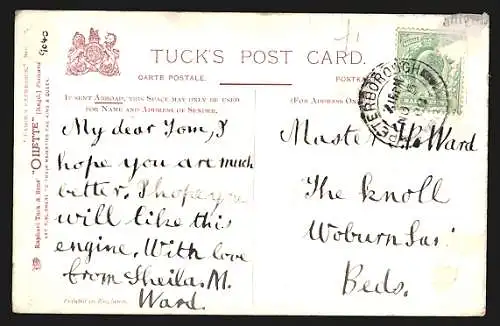 TUCK'S POST CARD.
CARTE POSTALE.
IF SENT ABROAD, THIS SPACE MAY ONLY BE USED
FOR NAME AND ADDRESS OF SENDER.
(FOR ADDRESS ON
My dear Tom, I
hope you are much
better. I hope you
will like this
engine. With love
from Sheila. M.
Ward.
Master Ward
The Knoll
Woburn
Beds.
PETERBOROUGH
9040
Raphael Tuck & Sons' "OILETTE" [Regd.] Postcard